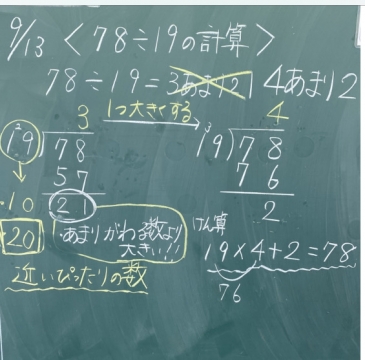 9/13 <78÷19の計算>
78÷19=3あまり21 4あまり2
1つ大きくする
3
19)78
57
21
・10
20
近いぴったりの数
あまりがわる数より
大きい!!!
4
19)78
76
2
けん算
19×4+2=78
76